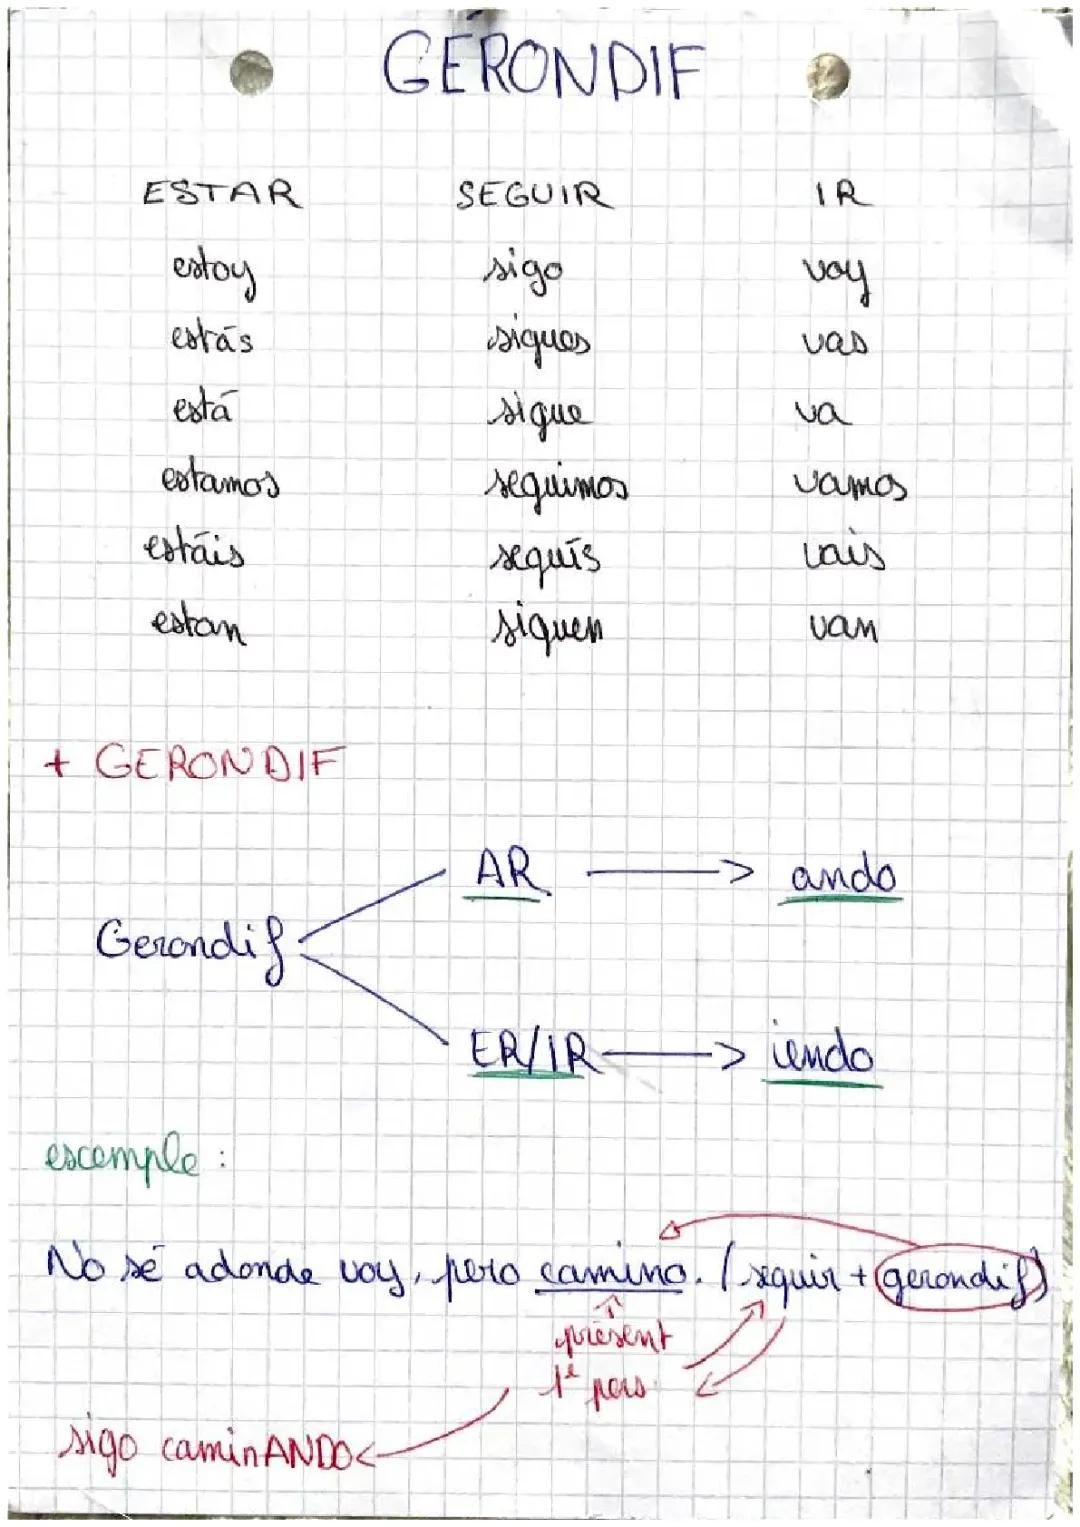 GÉRONDIF
ESTAR SEGUIR IR
estoy sigo voy
estás sigues vas
está sigue va
estamos seguimos vamos
estáis seguís vais
estan siguen van
+ GERONDIF
AR -> ando
Gerondif
ER/IR -> iendo
excemple :
No sé adonde voy, pero camino. (seguir + gerondif)
présent
1e pers
sigo caminANDO